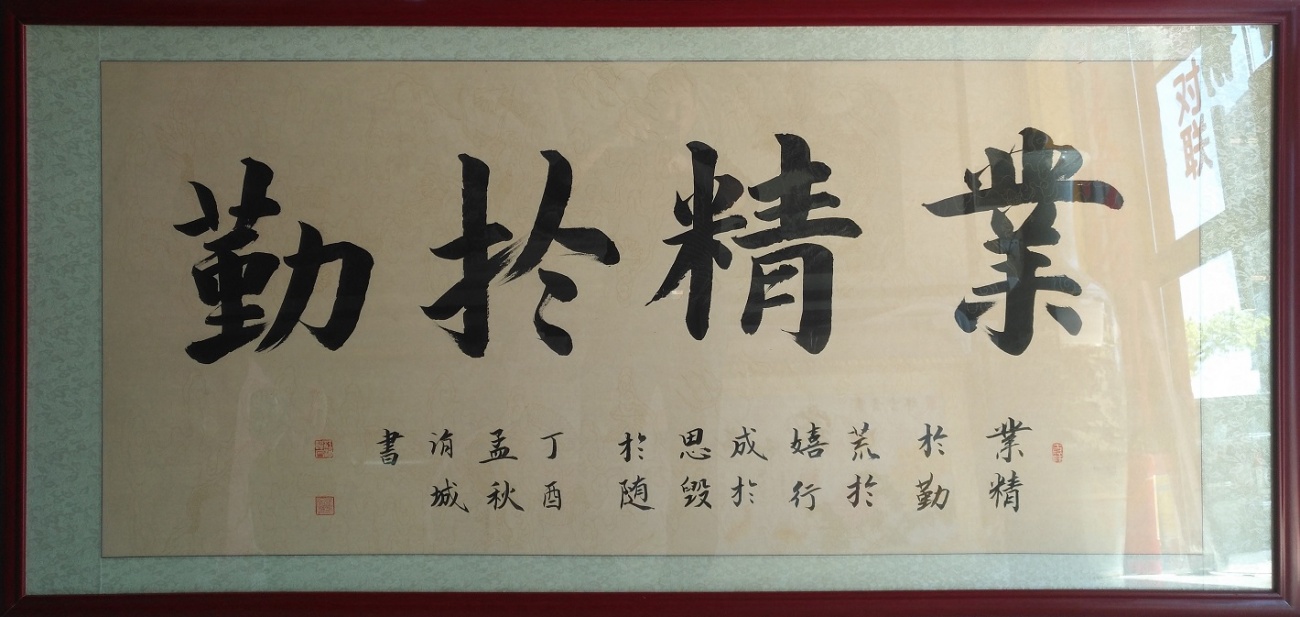 業精於勤
業精
於勤
荒於
嬉行
成於
思毁
於随
丁酉
孟秋
涓城
書
对联